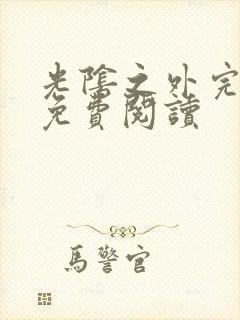 光陰之外完
免費閱讀
馬警官